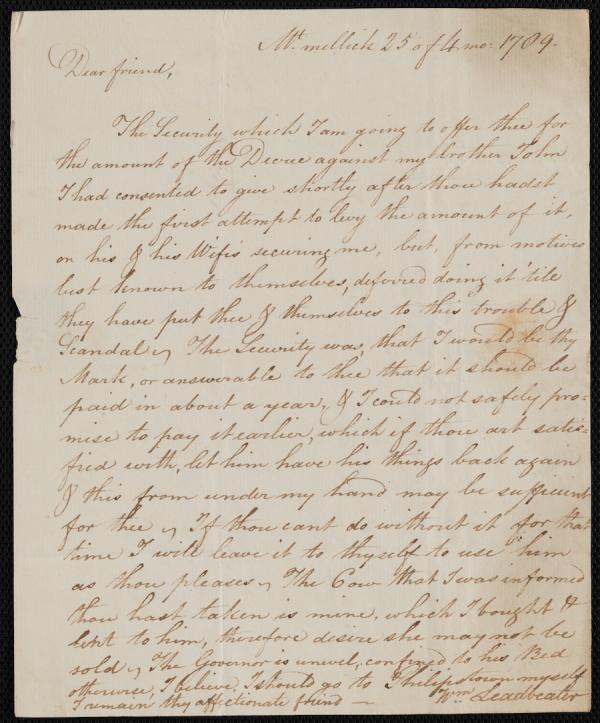 Mt. mellick 25 of 4 mo: 1789.
Dear friend,
The Security which I am going to offer thee for
the amount of the Decree against my brother John
I had consented to give shortly after thou hadst
made the first attempt to levy the amount of it,
on his & his Wife's securing me, but, from motives
best known to themselves, deferred doing it 'tile
they have put thee & themselves to this trouble &
Scandal, The Security was, that I would be thy
Mark, or answerable to thee that it should be
paid in about a year, & I could not safely pro=
mise to pay it earlier, which if thou art satis=
fied with, let him have his things back again
& this from under my hand may be sufficient
for thee, If thou cant do without it for that
time I will leave it to thyself to use him
as thou pleases, The Cow that I was informed
thou hast taken is mine, which I bought &
lent to him, therefore desire she may not be
sold, The Governor is unwel, confined to his Bed
otherwise, I believe, I should go to Philipstown myself
I remain thy affectionate friend —
Wm. Leadbeater